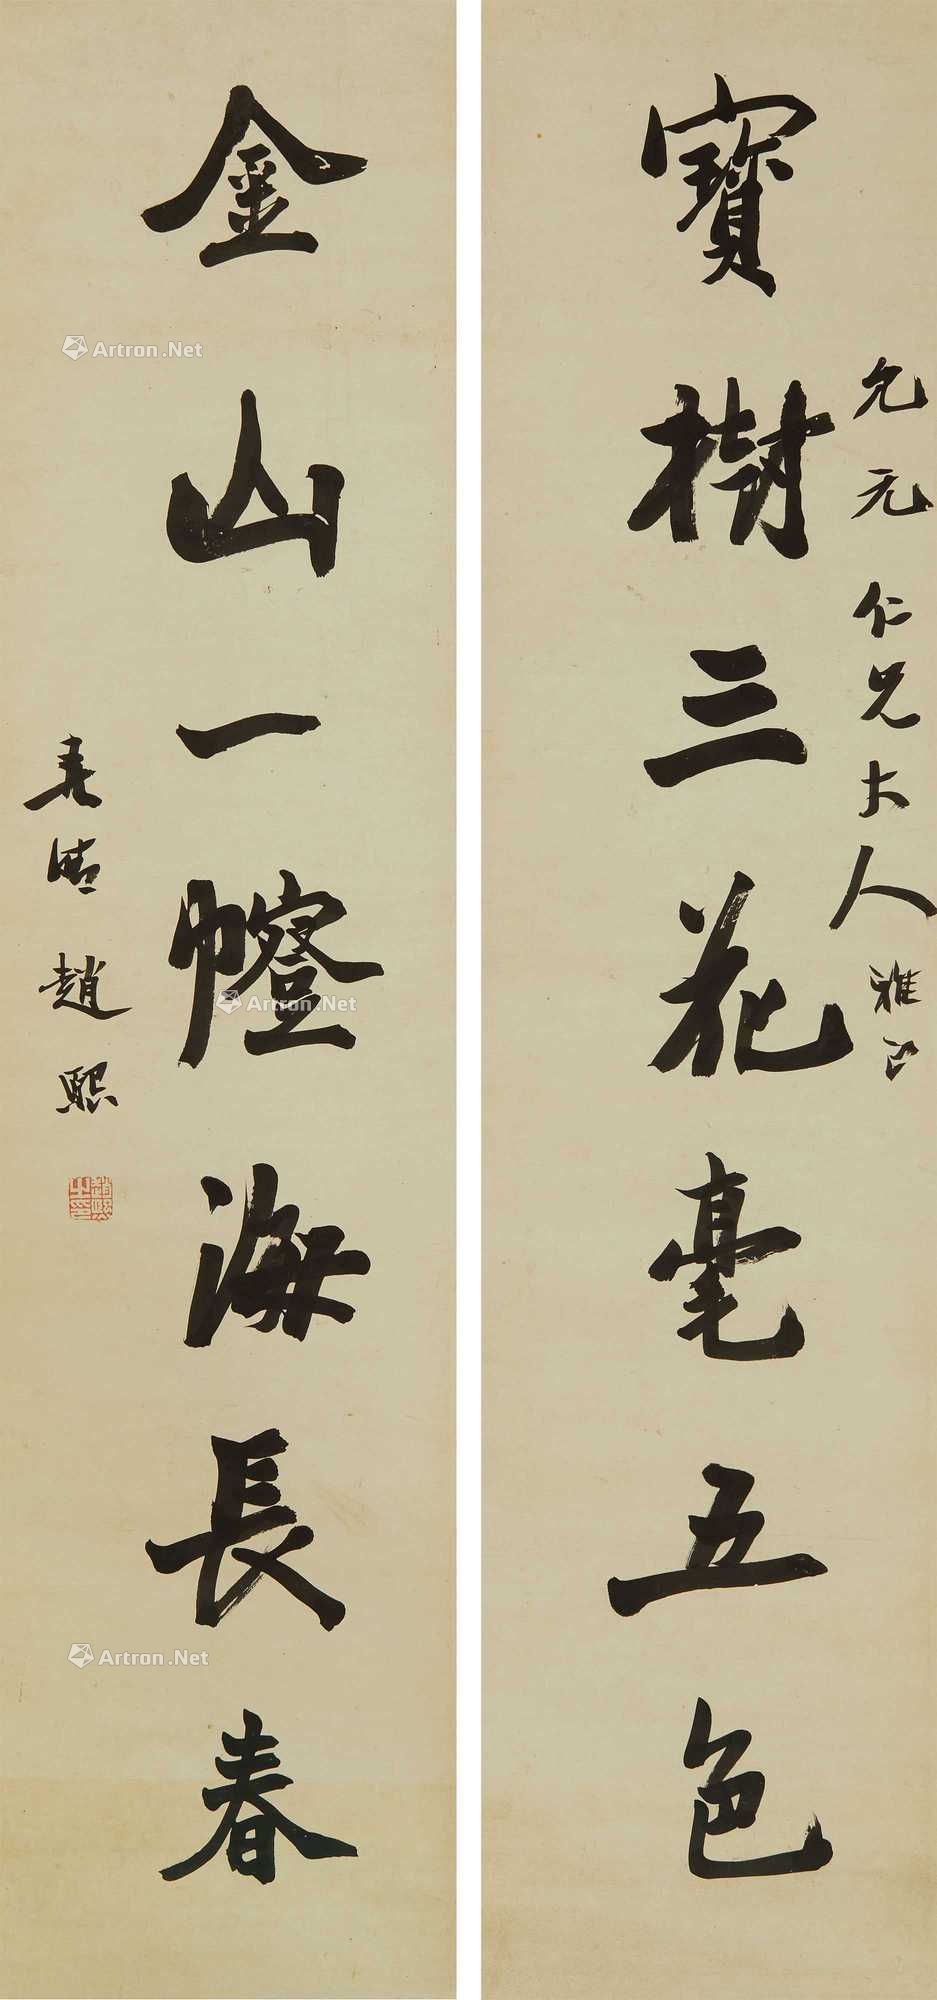 允元仁兄大人雅正
寶樹三花毫五色
金山一幢海長春
堯生趙熙
趙熙之印
Artron.Net
Artron.Net
Artron.Net